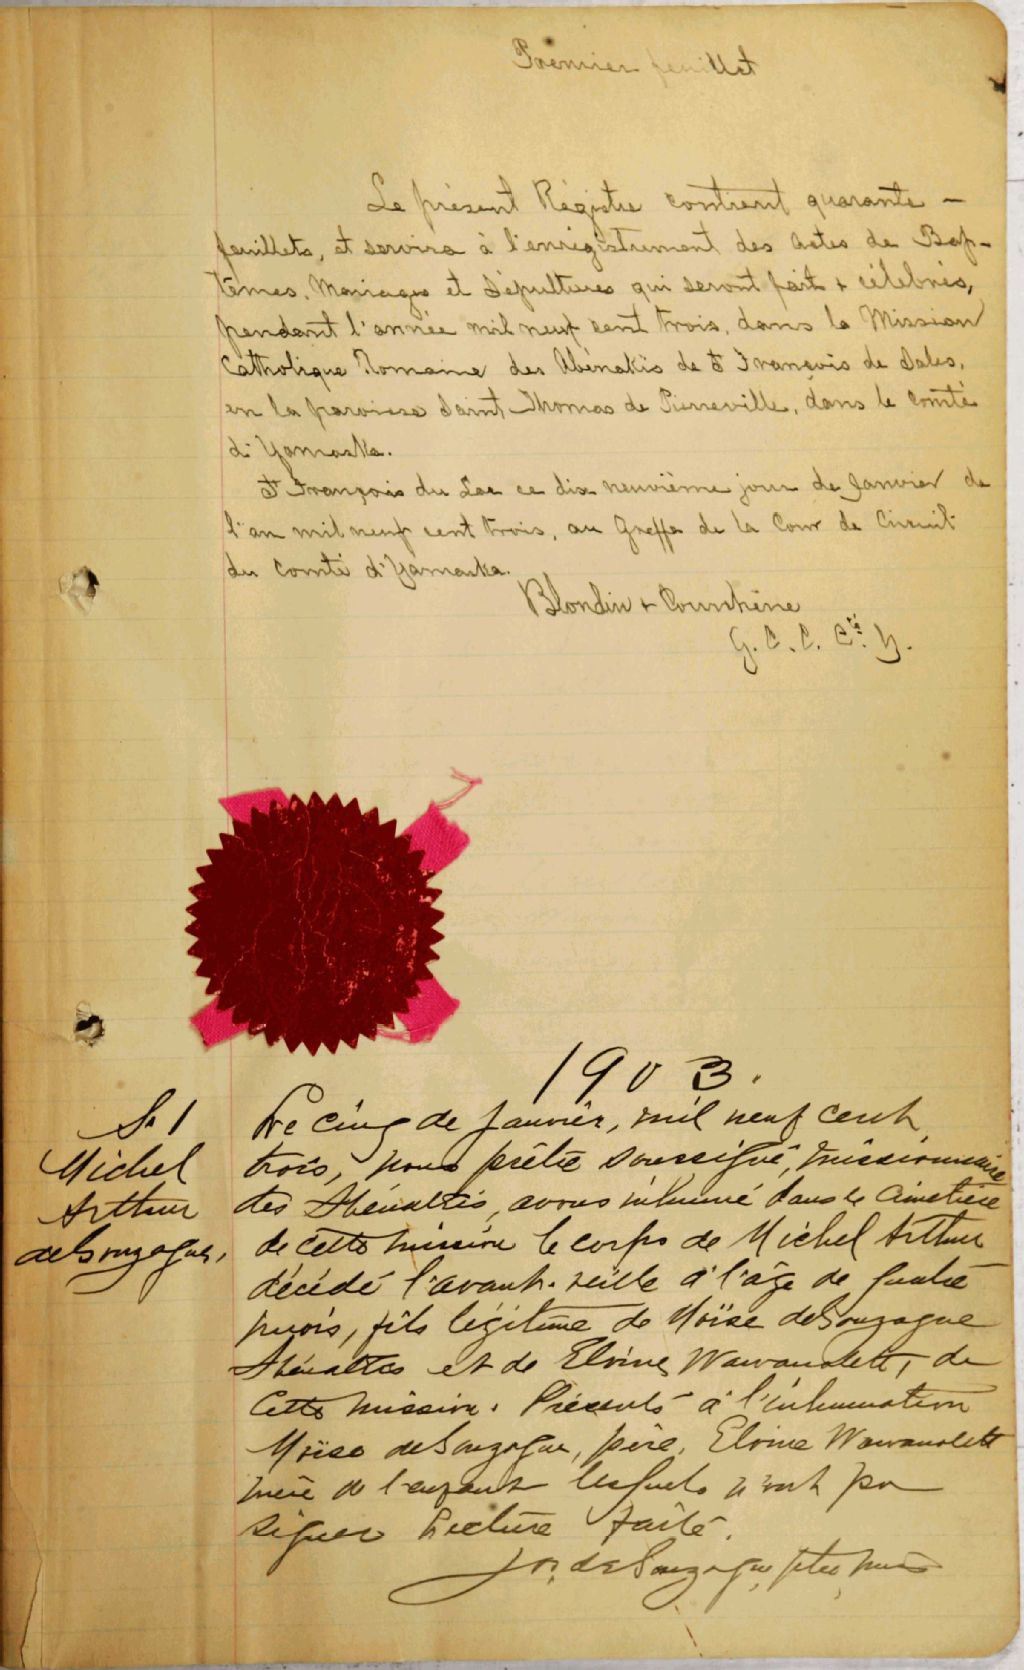 Premier feuillet
Le présent Régistre contient quarante -
feuillets, et servira à l'enrégistrement des actes de Bap-
têmes, Mariages et Sépultures qui seront fait & célébrés,
pendant l'année mil neuf cent trois, dans la Mission
Catholique Romaine des Abénakis de St François de Sales,
en la paroisse Saint Thomas de Pierreville, dans le comté
d'Yamaska.
St François du Lac ce dix neuvième jour de Janvier de
l'an mil neuf cent trois, au Greffe de la Cour de Circuit
du Comté d'Yamaska.
Blondin & Courchêne
G. C. C. Cté Y.
1903.
S. 1
Michel
Arthur
deGonzague.
Le cinq de Janvier, mil neuf cent
trois, nous prêtre soussigné, missionnaire
des Abénakis, avons inhumé dans le cimetière
de cette mission le corps de Michel Arthur
décédé l'avant-veille à l'âge de quatre
mois, fils légitime de Moïse deGonzague
Abénakis et de Elvine Wawanolett, de
cette mission. Présents à l'inhumation
Moïse deGonzague, père, Elvine Wawanolett
mère de l'enfant lesquels n'ont pu
signer Lecture faite.
Jos. de Gonzague, ptre, miss